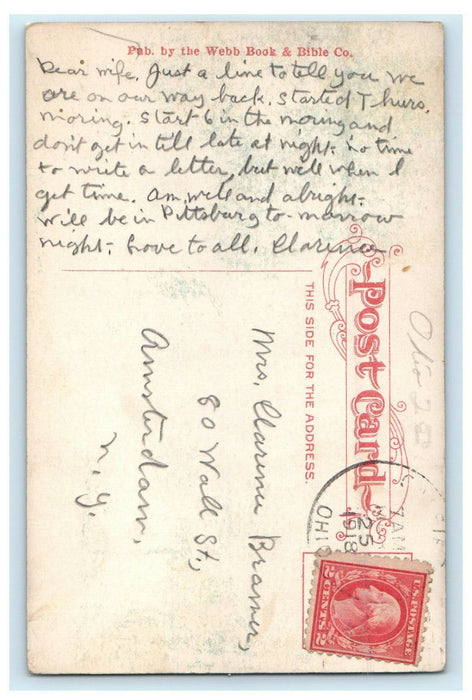 Pub. by the Webb Book & Bible Co.
Dear wife. Just a line to tell you we
are on our way back. Started Thurs.
moring. Start 6 in the moring and
dont get in till late at night. no time
to write a letter, but will when I
get time. Am well and alright.
will be in Pittsburg to-morrow
night. Love to all. Clarence
Post Card
THIS SIDE FOR THE ADDRESS.
Mrs. Clarence Bramer,
80 Wall St.,
Amsterdam,
N. Y.
Ohio
AM
25
1918
OHIO
U.S. POSTAGE
2 CENTS 2